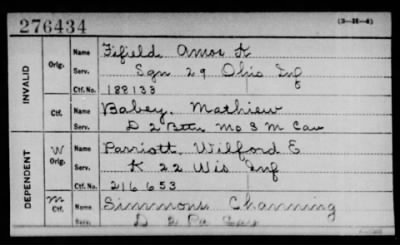 276434
(3-B-4)
INVALID
Orig.
Name Fifield, Amos K
Serv. Sgn 29 Ohio Inf
Ctf. No. 188133
Ctf.
Name Babey, Mathiew
Serv. D 2 Bttn Mo S M Cav
DEPENDENT
W
Orig.
Name Parriott, Wilford E
Serv. K 22 Wis Inf
Ctf. No. 216 653
m
Ctf.
Name Simmons Channing
Serv. D 2 Pa Cav